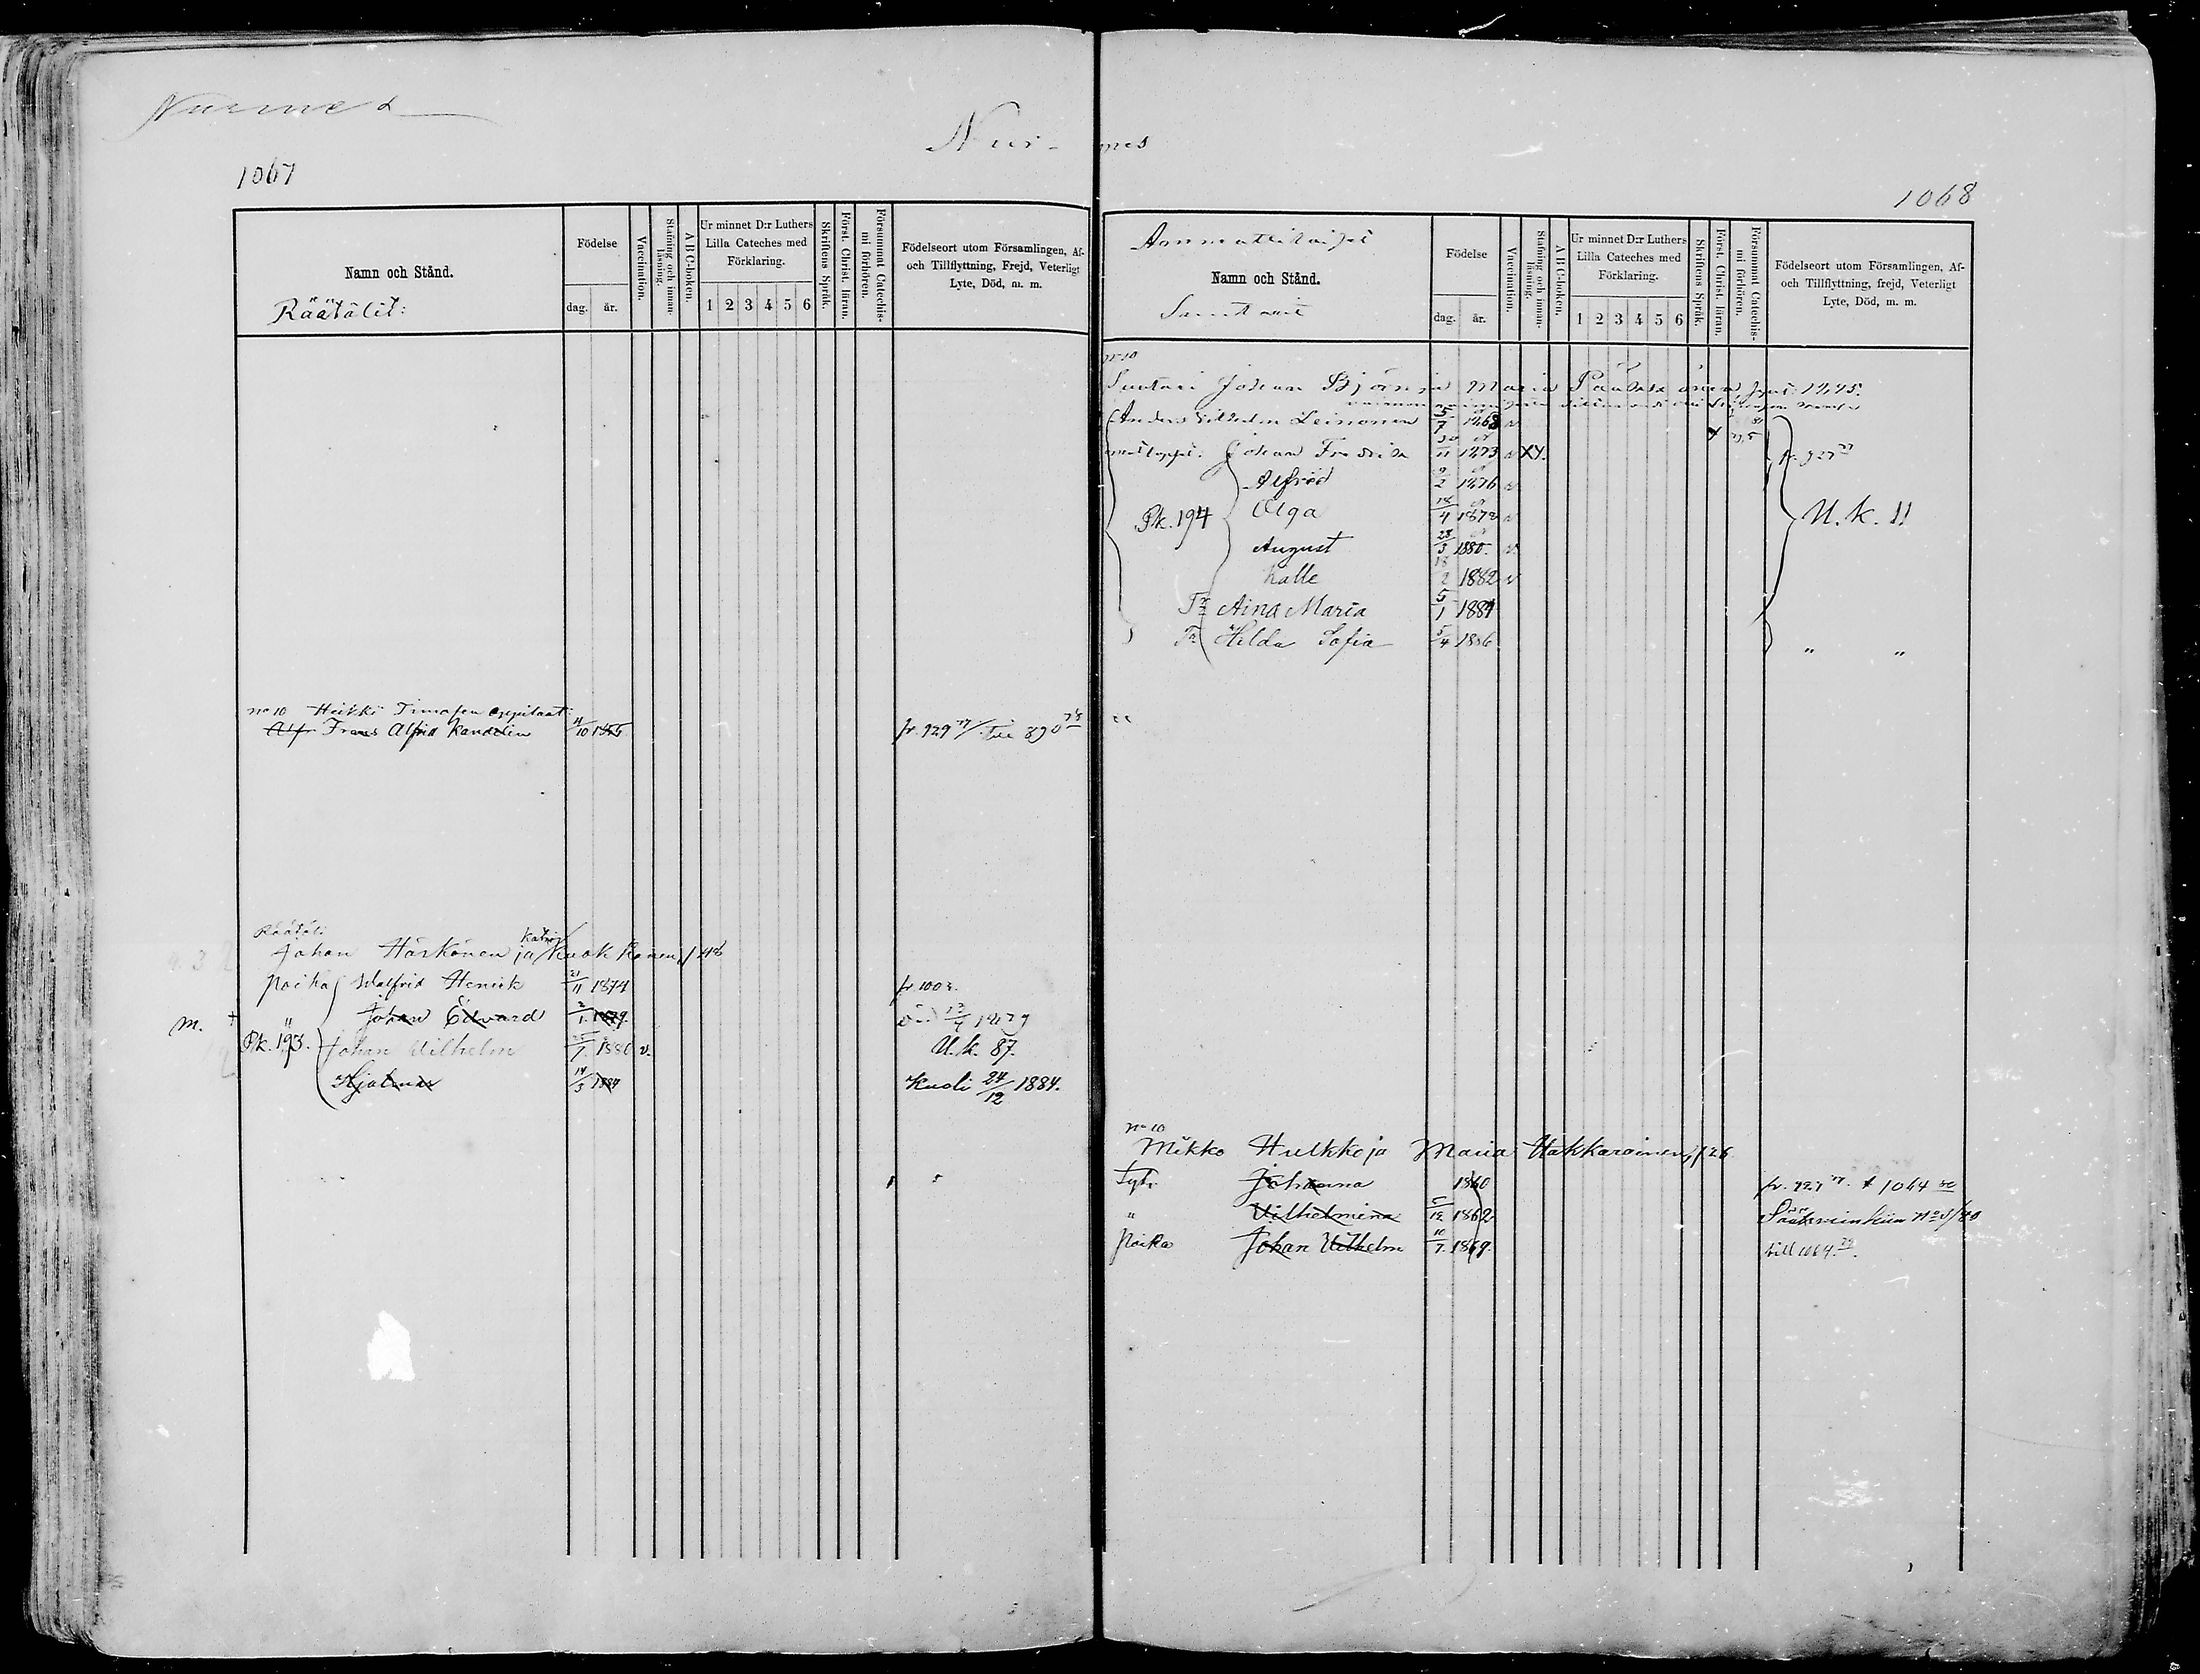 Nurmes
Nur-mes
1067
Namn och Stånd.
Räätälit:
Födelse
dag. år.
Vaccination.
Stafning och innan-läsning.
ABC-boken.
Ur minnet D:r Luthers Lilla Cateches med Förklaring.
1 2 3 4 5 6
Skriftens Språk.
Först. Christ. läran.
Försummat Catechismi förhören.
Födelseort utom Församlingen, Af- och Tillflyttning, Frejd, Veterligt Lyte, Död, m. m.
no 10 Heikki Timosen oppilaat:
Alfr Frans Alfrid Kandelin 11/10 fr. 929 77/. till 890 78
Räätäli
Johan Härkönen ja Katri Kuokkanen, f 48
Poika Walfrid Henrik 21/11 1874 fr 1003.
m. † " Johan Edvard 2/1 1879. 1879
Pk. 193. Johan Vilhelm 1880 v. U.k. 87.
Hjalmar 14/3 1884 Kuoli 24/12 1884.
1068
Ammattilaiset
Namn och Stånd.
Suutarit
Födelse
dag. år.
Vaccination.
Stafning och innan-läsning.
ABC-boken.
Ur minnet D:r Luthers Lilla Cateches med Förklaring.
1 2 3 4 5 6
Skriftens Språk.
Först. Christ. läran.
Försummat Catechismi förhören.
Födelseort utom Församlingen, Af- och Tillflyttning, frejd, Veterligt Lyte, Död, m. m.
no 10
Suutari Johan Björn ja Maria 1845.
Anders Vilhelm Leinonen 5/7 1868 v
Johan Fredrik 30/11 1873 v XY. fr. 927 77
Alfrid 9/2 1876 v
Pk. 194 Olga 18/4 1878 v U.k. 11
August 28/3 1880. v.
Kalle 18/2 1882 v
Tr Aina Maria 5/1 1884
Tr Hilda Sofia 5/4 1886 " "
no 10
Mikko Hulkko ja Maria Hakkarainen, f 26
Tytr. Johanna 1860 fr. 927 77. t 1064 80
" Vilhelmina 5/12 1862
Poika Johan Vilhelm 10/7. 1869. till 1064. 79.